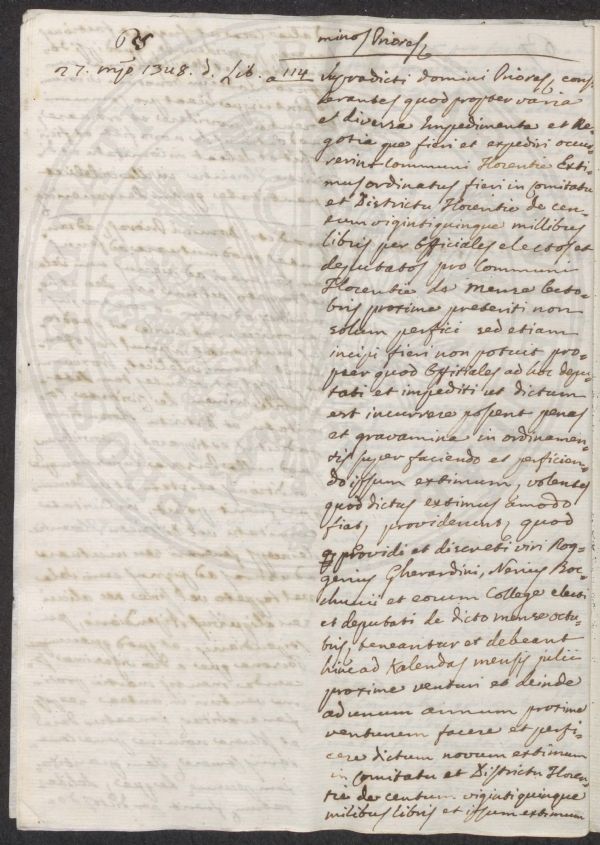 68
minos Priores
27. mço 1328. d. Lib. a 114
Supradicti domini Priores cons=
iderantes quod propter varia
et diversa Impedimenta et Ne=
gotia que fieri et expediri occur=
rerint Communi Florentie Exti=
mus ordinatus fieri in Comitatu
et Districtu Florentie de cen=
tum vigintiquinque millibus
libris per Officiales electos et
deputatos pro Communi
Florentie de Mense Octo=
bris proxime preteriti non
solum perfici sed etiam
incipi fieri non potuit pro=
pter quod Offitiales ad hoc depu=
tati et impediti ut dictum
est incurrere possent penas
et gravamina in ordinamen=
tis super faciendo et perficien=
do ipsum extimum, volentes
quod dictus extimus Amodo
fiat, providerunt, quod
providi et discreti viri Rog=
gerius Gherardini, Nerius Boc=
chucii et eorum College electi
et deputati de dicto mense octu=
bris, teneantur et debeant
hinc ad Kalendas mensis julii
proxime venturi et deinde
ad unum annum proxime
venturum facere et perfi=
cere dictum novum extimum
in Comitatu et Districtu Floren=
tie de centum vigintiquinque
milibus libris et ipsum extimum